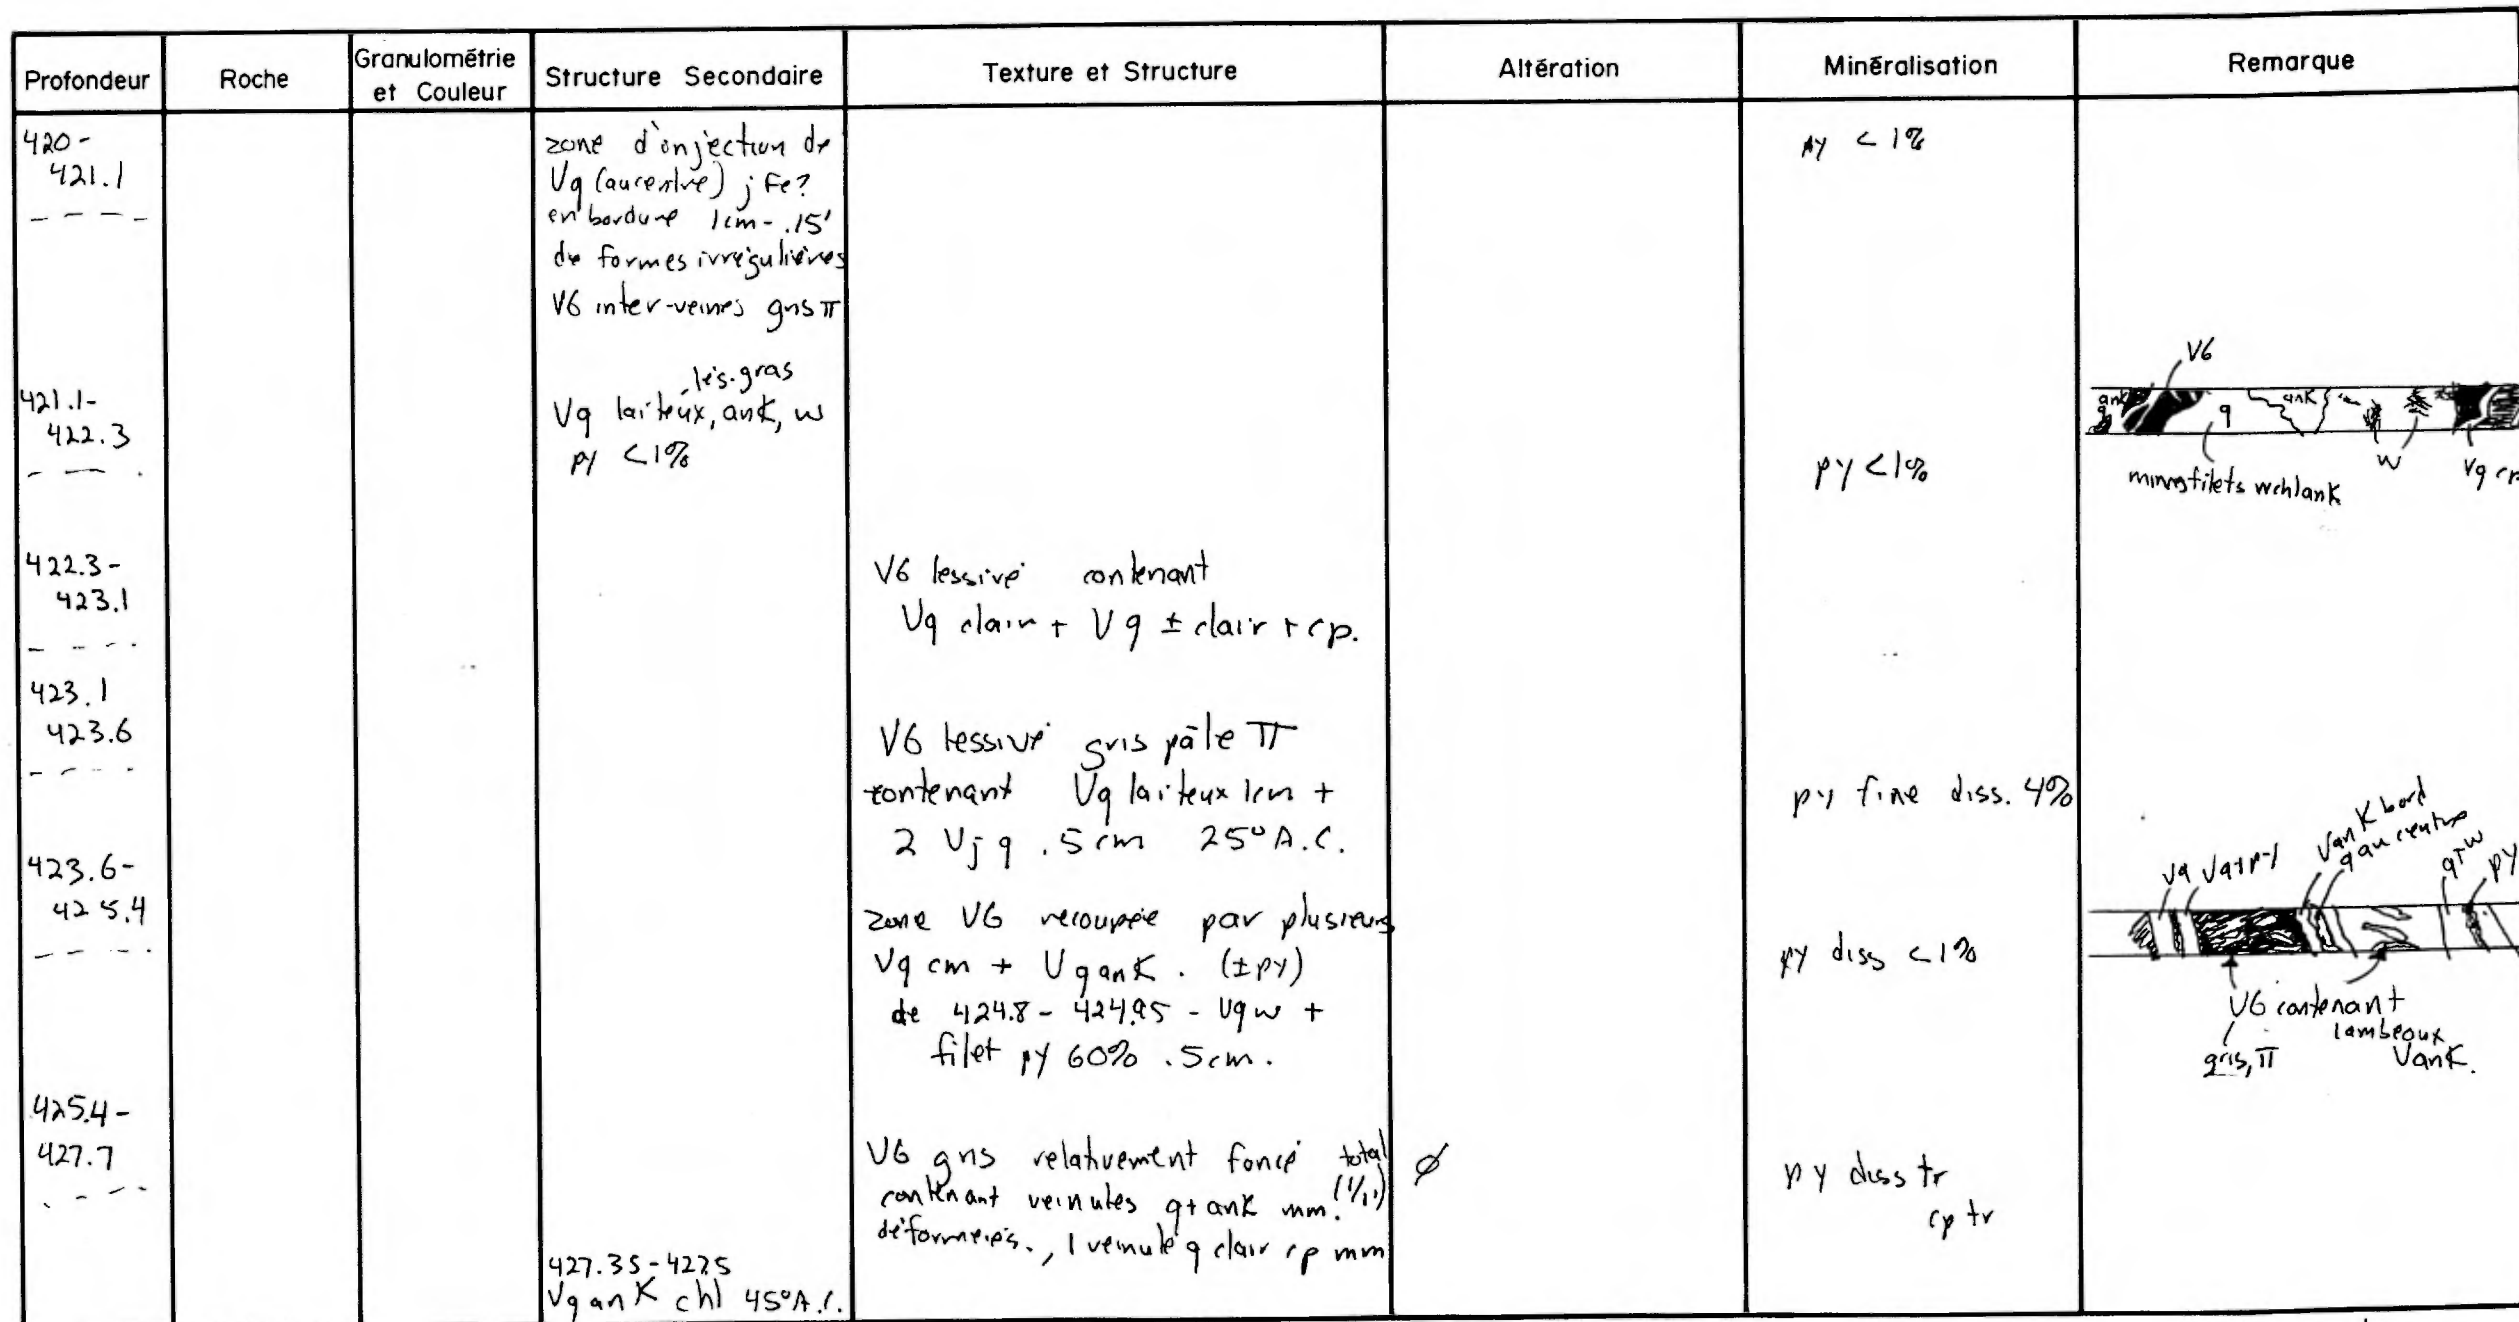 Profondeur
Roche
Granulométrie
et Couleur
Structure Secondaire
Texture et Structure
Altération
Minéralisation
Remarque
420-
421.1
zone d'injection de
Vq (au centre) j Fe?
en bordure 1cm-.15'
de formes irrégulières
V6 inter-veines gris π
py < 1%
421.1-
422.3
lés. gras
Vq laiteux, ank, w
py <1%
py <1%
V6
ank
q
q
ank
filets w chl ank
w
Vq cp
422.3-
423.1
V6 lessivé contenant
Vq clair + Vq ± clair + cp.
423.1
423.6
V6 lessivé gris pâle π
contenant Vq laiteux 1cm +
2 Vjq .5cm 25° A.C.
py fine diss. 4%
423.6-
425.4
zone V6 recoupée par plusieurs
Vq cm + Vqank. (±py)
de 424.8 - 424.95 - Vqw +
filet py 60% .5cm.
py diss <1%
Vq
Vq+py
Vank bord
q au centre
q+w
py
V6 contenant
lambeaux
Vank.
gris, π
425.4-
427.7
V6 gris relativement foncé total
contenant veinules q+ank mm. (1/11)
déformées., 1 veinule q clair cp mm
ø
py diss tr
cp tr
427.35-427.5
Vqank chl 45° A.C.